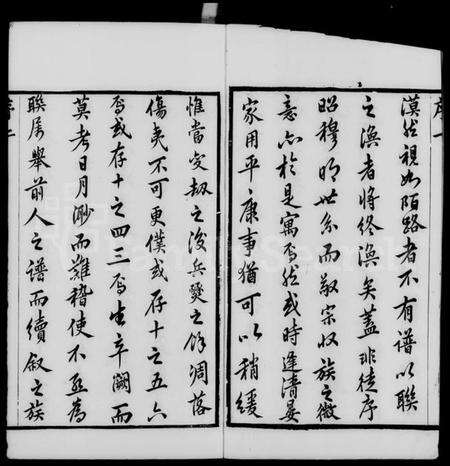 漠然視如陌路者不有譜以聯
之渙者將終渙矣蓋非徒序
昭穆明世系而敬宗收族之微
意亦於是寓焉然或時逢清晏
家用平康事猶可以稍緩
惟當变劫之後兵燹之餘凋落
傷夷不可更僕或存十之五六
焉或存十之四三焉生卒闕而
莫考日月渺而難稽使不亟為
聯屬舉前人之譜而續叙之族